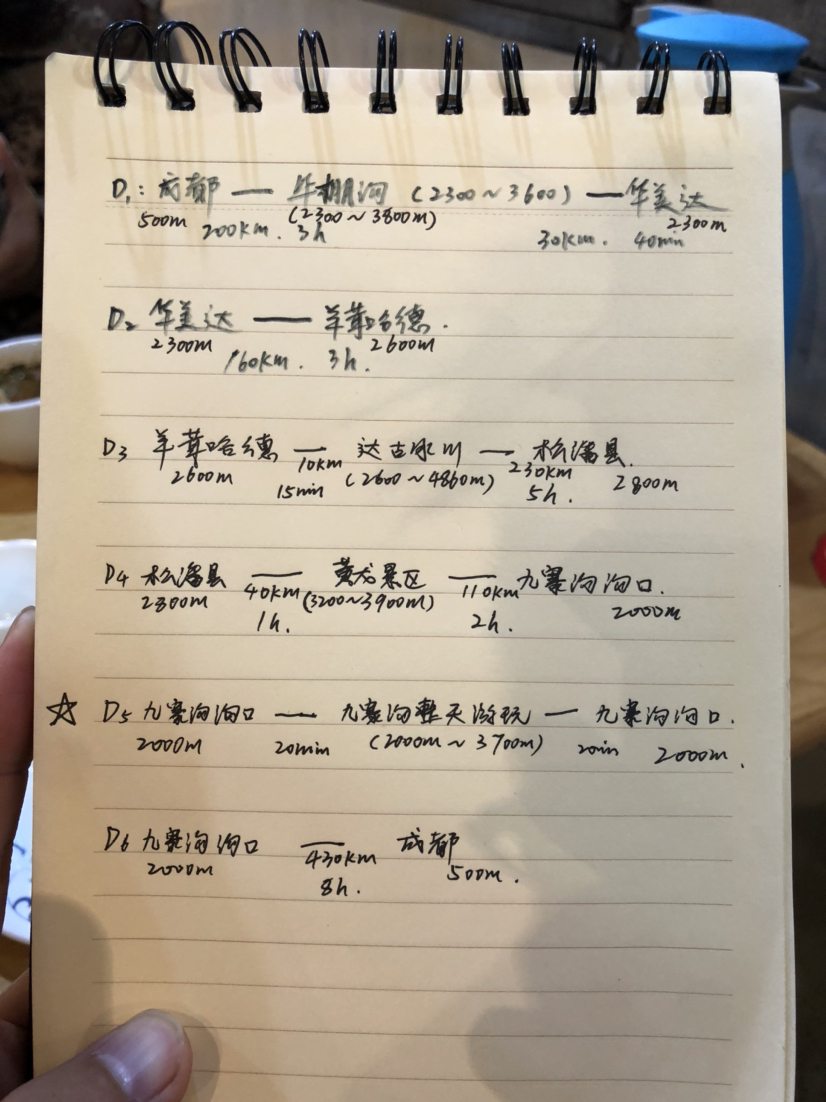 D1: 成都 — 牛棚沟 (2300~3600) — 华美达
500m 200km. 3h (2300~3800m) 30km. 40min 2300m
D2 华美达 — 羊茸哈德.
2300m 160km. 3h. 2600m
D3 羊茸哈德 — 达古冰川 — 松潘县.
2600m 10km 15min (2600~4860m) 230km 5h. 2800m
D4 松潘县 — 黄龙景区 — 九寨沟沟口.
2800m 40km 1h. (3200~3900m) 110km 2h. 2000m
☆ D5 九寨沟沟口 — 九寨沟整天游玩 — 九寨沟沟口.
2000m 20min (2000m~3700m) 20min 2000m.
D6 九寨沟沟口 — 成都
2000m 430km 8h. 500m.